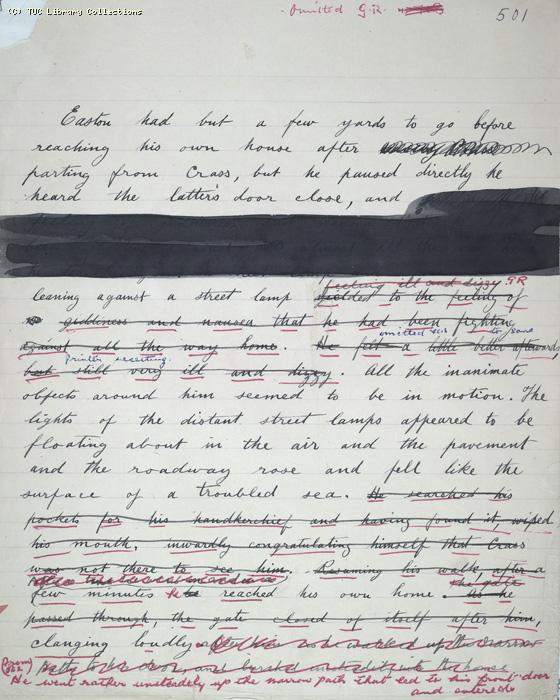 (C) TUC Library Collections
omitted G.R.
501
Easton had but a few yards to go before
reaching his own house after
parting from Crass, but he paused directly he
heard the latter's door close, and
feeling ill and dizzy G.R
leaning against a street lamp yielded to the feeling of
giddiness and nausea that he had been fighting
omitted see to same
against all the way home. He felt a little better afterwards
Printer resetting
but still very ill and dizzy. All the inanimate
objects around him seemed to be in motion. The
lights of the distant street lamps appeared to be
floating about in the air and the pavement
and the roadway rose and fell like the
surface of a troubled sea. He searched his
pockets for his handkerchief and having found it, wiped
his mouth, inwardly congratulating himself that Crass
was not there to see him. Resuming his walk, after a
the gate
few minutes he reached his own home. As he
passed through, the gate closed of itself after him,
clanging loudly.
He went rather unsteadily up the narrow path that led to his front door
and entered